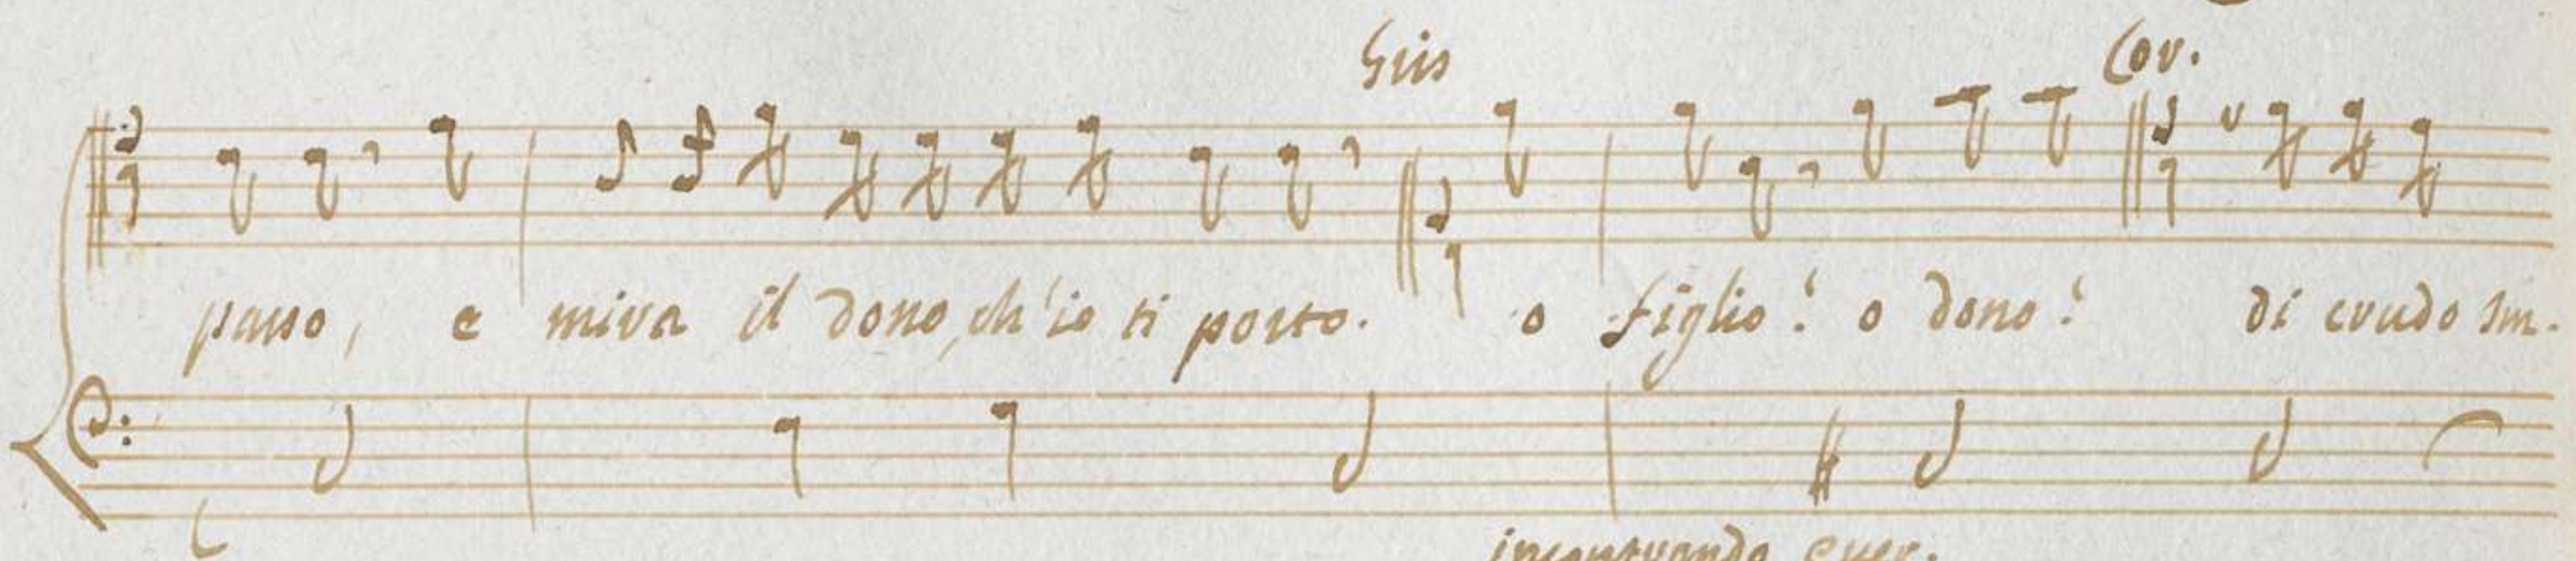 Giis Cor.
passo, e mira il dono, ch'io ti porto. o figlio! o dono! di crudo Im-
incontrando